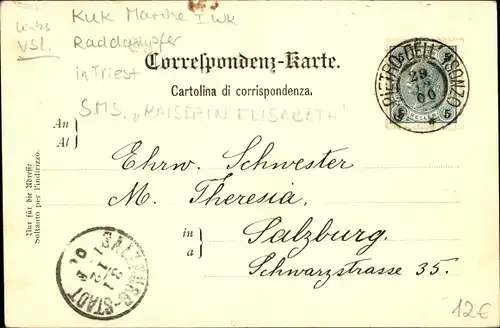 Links
VSl.
KuK Marine I WK
Raddampfer
in Triest
SMS. „KAISERIN ELISABETH"
Correspondenz-Karte.
Cartolina di corrispondenza.
S. PIETRO DELL' ISONZO
29
00
5 HELLER 5
An
Al
Nur für die Adresse
Soltanto per l'indirizzo.
Ehrw. Schwester
M. Theresia,
in
a
Salzburg.
Schwarzstrasse 35.
SALZBURG-STADT
31
12
00
12€